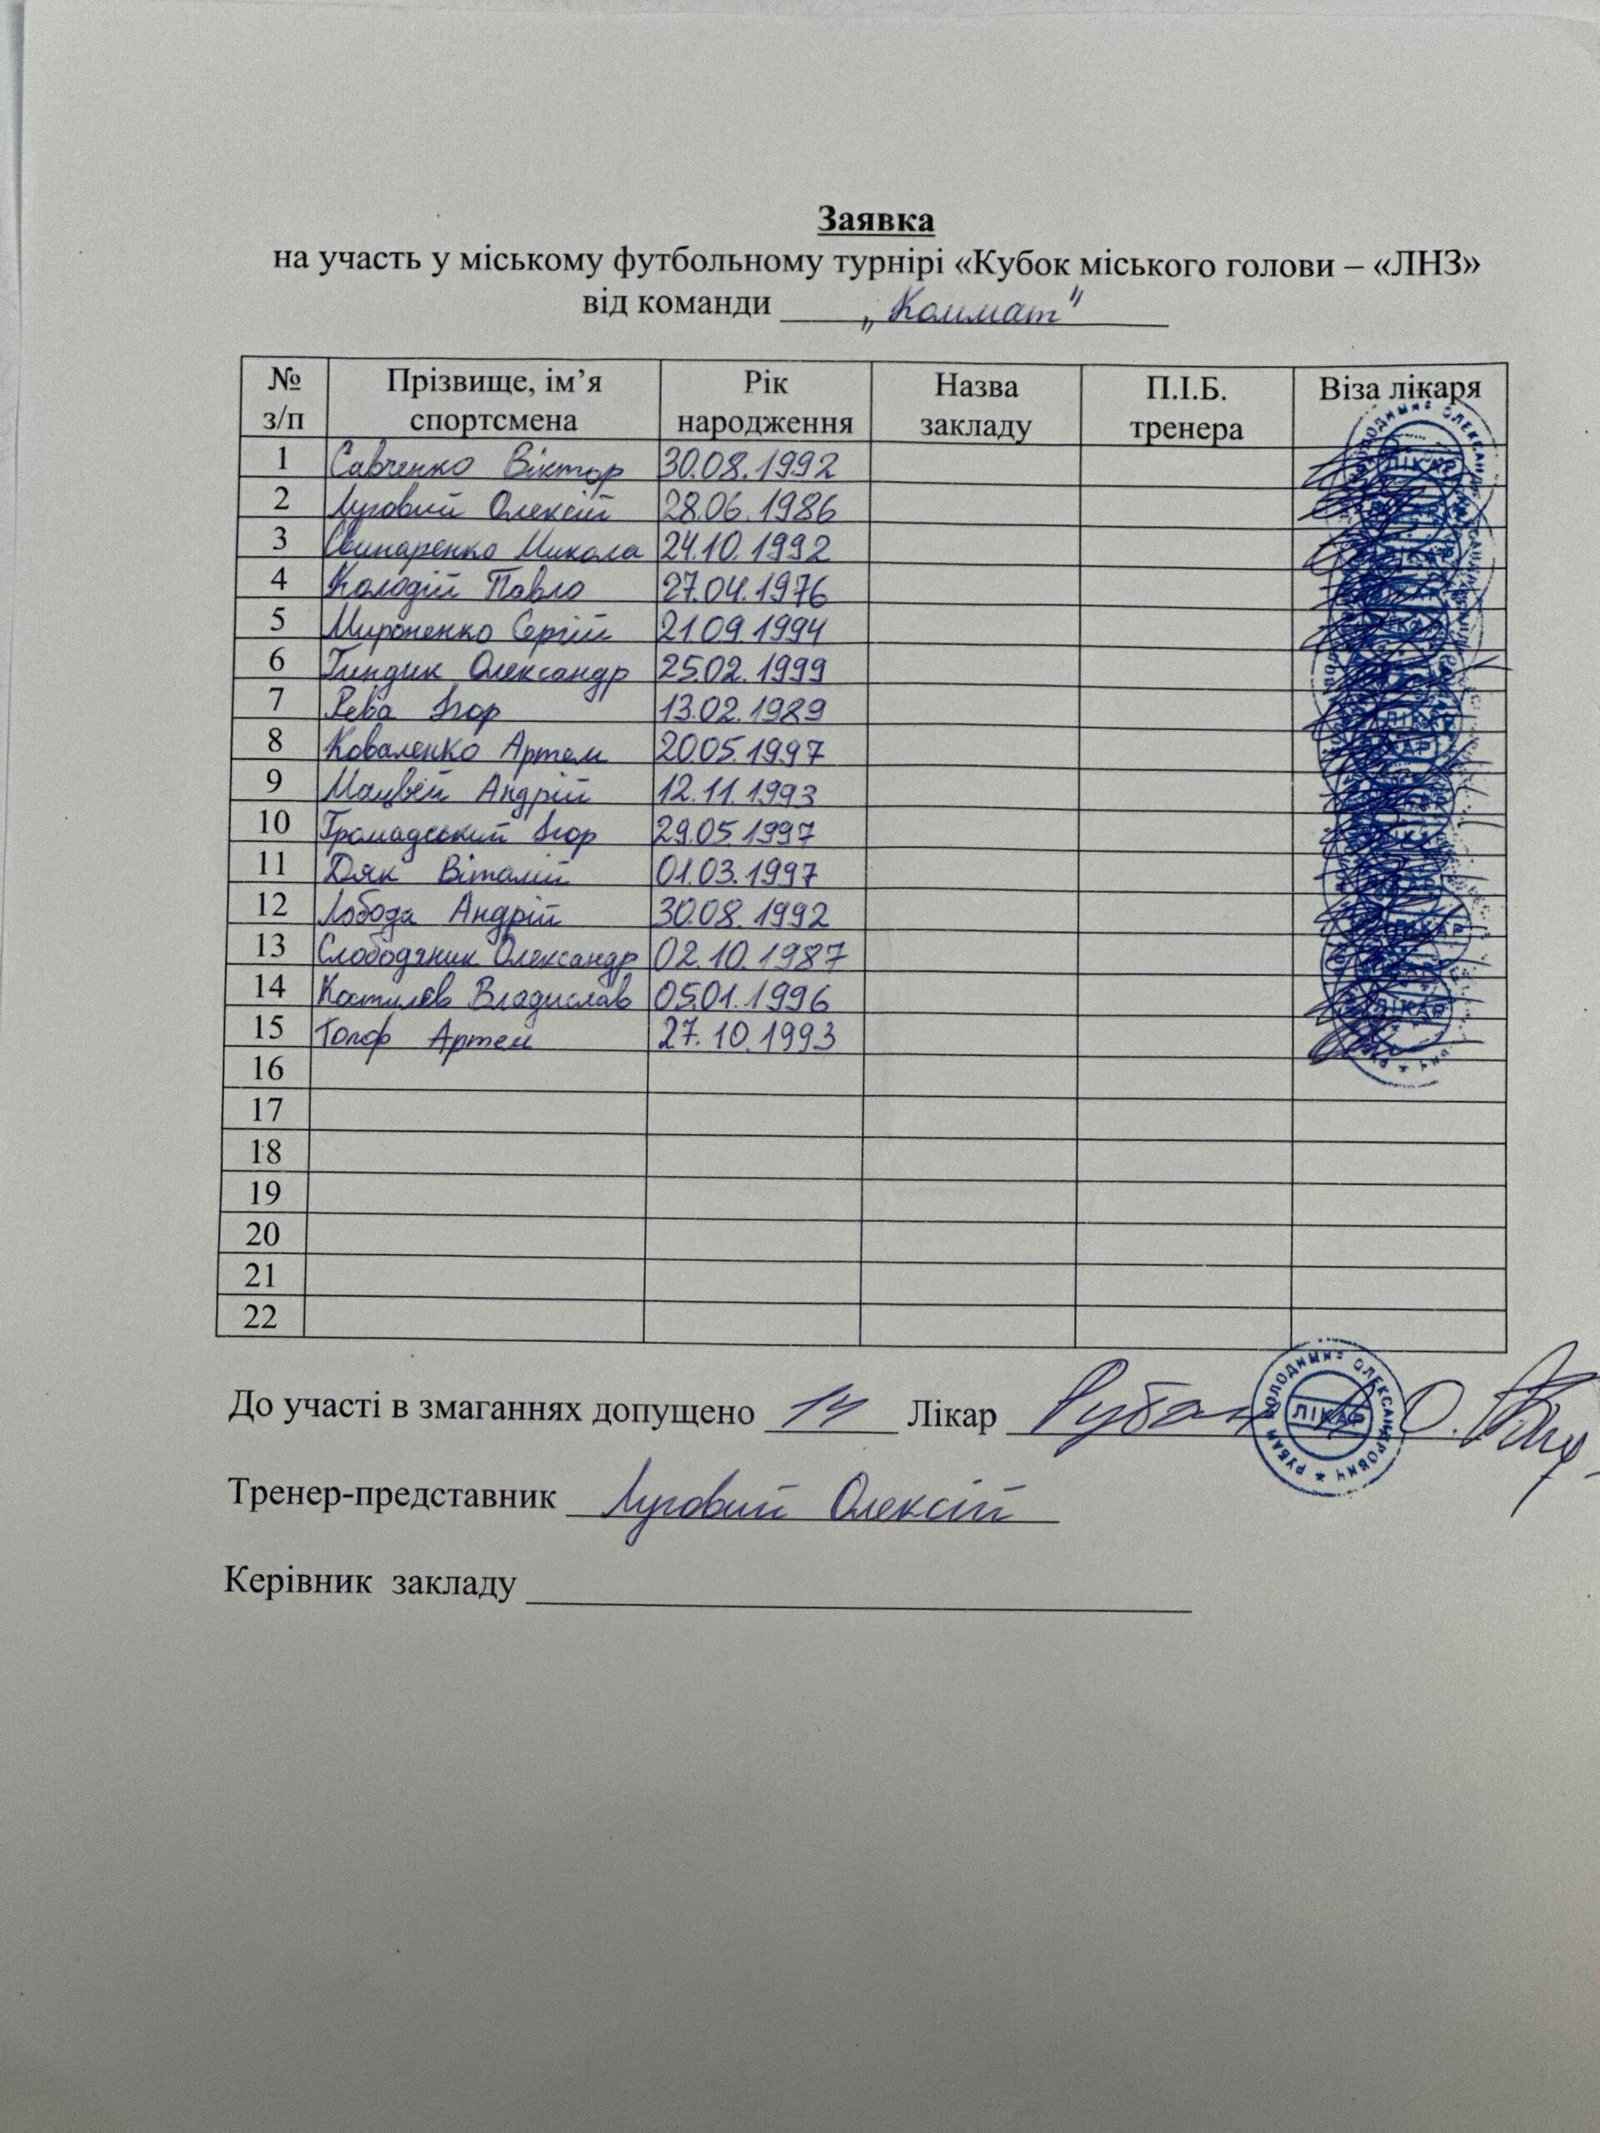 Заявка
на участь у міському футбольному турнірі «Кубок міського голови – «ЛНЗ»
від команди „Коммат"
№ з/п Прізвище, ім’я спортсмена Рік народження Назва закладу П.І.Б. тренера Віза лікаря
1 Савченко Віктор 30.08.1992
2 Луговий Олексій 28.06.1986
3 Свинаренко Микола 24.10.1992
4 Колодій Павло 27.04.1976
5 Мироненко Сергій 21.09.1994
6 Гиндик Олександр 25.02.1999
7 Рева Ігор 13.02.1989
8 Коваленко Артем 20.05.1997
9 Мацвей Андрій 12.11.1993
10 Громадський Ігор 29.05.1997
11 Дяк Віталій 01.03.1997
12 Лобода Андрій 30.08.1992
13 Слободяник Олександр 02.10.1987
14 Костилєв Владислав 05.01.1996
15 Голф Артем 27.10.1993
16
17
18
19
20
21
22
До участі в змаганнях допущено 14 Лікар Рубан О.
ЛІКАР
Тренер-представник Луговий Олексій
Керівник закладу